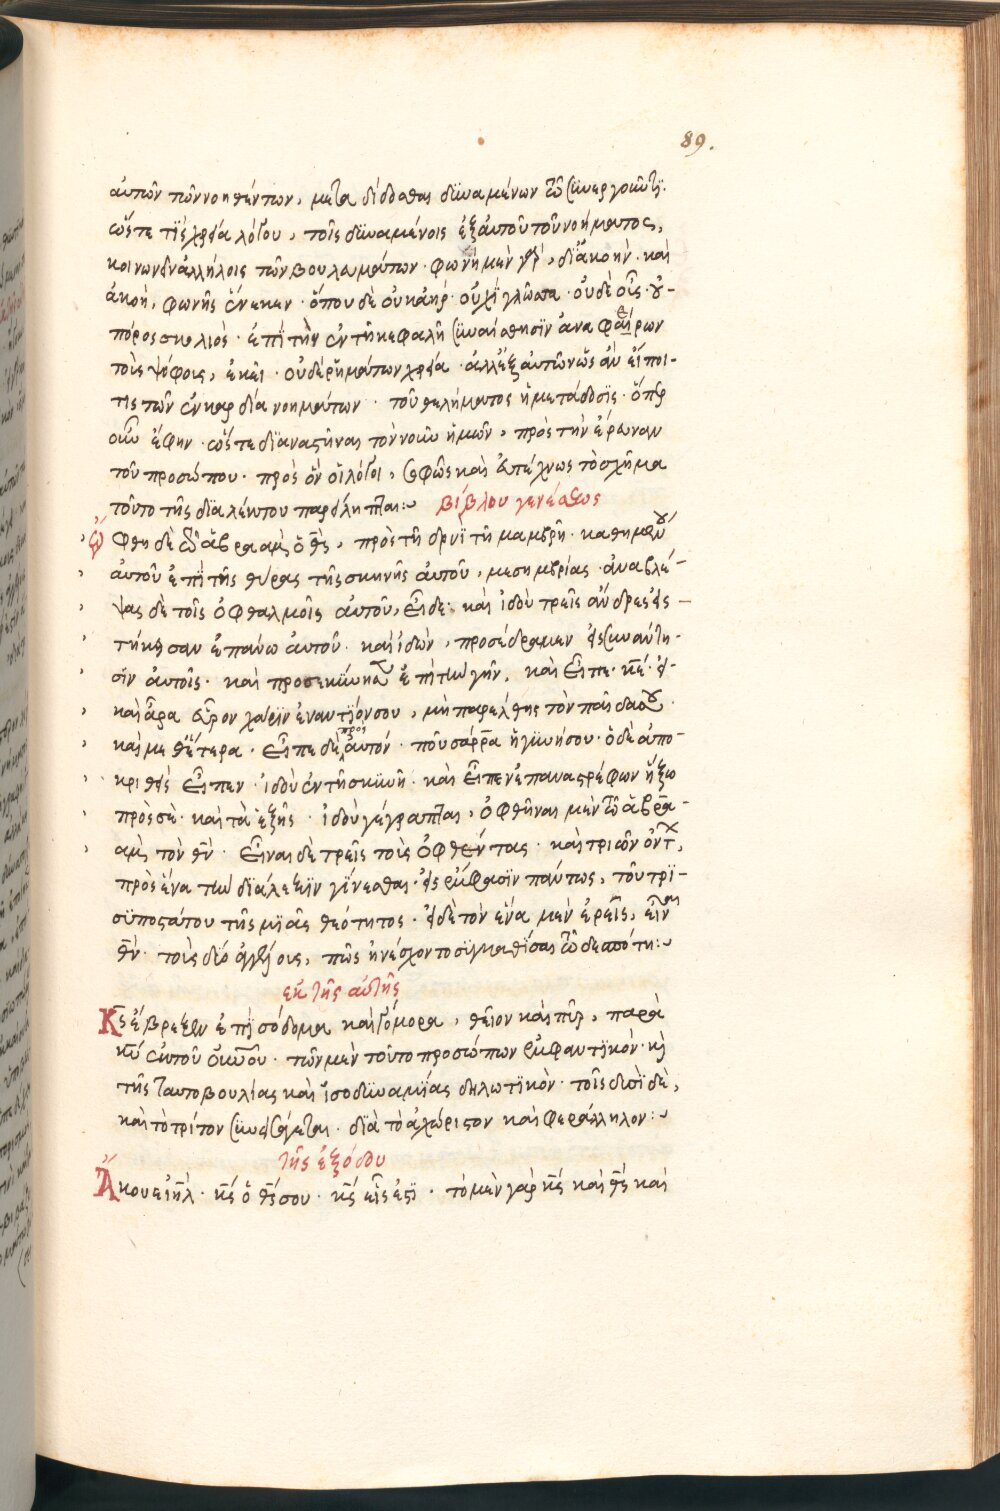 89.
αὐτῶν τῶν νοηθέντων, μεταδίδοσθαι δυναμένων τῶ συνεργοῦντι·
ὥστε τίς χρεία λόγου, τοῖς δυναμένοις ἐξ αὐτοῦ τοῦ νοήματος,
κοινωνεῖν ἀλλήλοις τῶν βουλευμάτων· φωνὴ μὲν γὰρ, δι' ἀκοὴν· καὶ
ἀκοὴ, φωνῆς ἕνεκεν· ὅπου δὲ οὐκ ἀὴρ· οὐχὶ γλῶττα· οὐδὲ οὖς· οὐ-
πόρος σκολιὸς· ἐπὶ τὴν ἐν τῆ κεφαλῆ συναίσθησιν ἀναφαίρων
τοὺς ψόφους, ἐκεῖ· οὐδὲ ῥημάτων χρεία· ἀλλ' ἐξ αὐτῶν ὡς ἂν εἴποι-
τις τῶν ἐν καρδία νοημάτων· τοῦ θελήματος ἡ μετάδοσις· ὅπερ
οὖν ἔφην· ὥστε διαναστῆναι τὸν νοῦν ἡμῶν, πρὸς τὴν ἔρευναν
τοῦ προσώπου· πρὸς ὃν οἱ λόγοι, σοφῶς καὶ ἀτέχνως τὸ σχῆμα
τοῦτο τῆς διαλέκτου παρείληπται:~ βίβλου γενέσεως
Ὤφθη δὲ τῶ ἀβρααμ ὁ θς, πρὸς τῆ δρυῒ τῆ μαμβρῆ· καθημένου
αὐτοῦ ἐπὶ τῆς θύρας τῆς σκηνῆς αὐτοῦ, μεσημβρίας· ἀναβλέ-
ψας δὲ τοῖς ὀφθαλμοῖς αὐτοῦ, εἶδε· καὶ ἰδοὺ τρεῖς ἄνδρες εἱσ-
τήκησαν ἐπάνω αὐτοῦ· καὶ ἰδὼν, προσέδραμεν εἰς συνάντη-
σιν αὐτοῖς· καὶ προσεκύνησεν ἐπὶ τὴν γῆν, καὶ εἶπε· κε· εἰ-
καὶ ἄρα εὗρον χάριν ἐναντίον σου, μὴ παρέλθης τὸν παῖδα σου·
καὶ μεθ' ἕτερα· εἶπε δὲ πρὸς αὐτόν· ποῦ σάρρα ἡ γυνή σου· ὁ δὲ ἀπο-
κριθεὶς εἶπεν· ἰδοὺ ἐν τῆ σκηνῆ· καὶ εἶπεν ἐπαναστρέφων ἥξω
πρὸς σὲ· καὶ τὰ ἑξῆς· ἰδοὺ γέγραπται, ὀφθῆναι μὲν τῶ ἀβρα-
αμ τὸν θν· εἶναι δὲ τρεῖς τοὺς ὀφθέντας· καὶ τριῶν ὄντων,
πρὸς ἕνα τὴν διάλεξιν γίνεσθαι· εἰς ἔμφασιν πάντως, τοῦ τρι-
συποστάτου τῆς μιᾶς θεότητος· εἰ δὲ τὸν ἕνα μὲν ἐρεῖς, εἶναι
θν· τοὺς δύο ἀγγέλους, πῶς ἠνέσχοντο συγκαθίσαι τῶ δεσπότη:~
ἐκ τῆς αὐτῆς
Κς ἔβρεξεν ἐπὶ σόδομα καὶ γόμορα, θεῖον καὶ πῦρ, παρὰ
κυ ἐκ τοῦ οὐνοῦ· τῶν μὲν τοῦτο προσώπων ἐμφαντικὸν· καὶ
τῆς ταυτοβουλίας καὶ ἰσοδυναμίας δηλωτικὸν· τοῖς δυσὶ δὲ,
καὶ τὸ τρίτον συνεισάγεται· διὰ τὸ ἀχώριστον καὶ φεράλληλον:~
τῆς ἐξόδου
Ἄκουε ἰηλ· κς ὁ θς σου· κς εἷς ἐστι· τὸ μὲν γὰρ κς καὶ θς καὶ